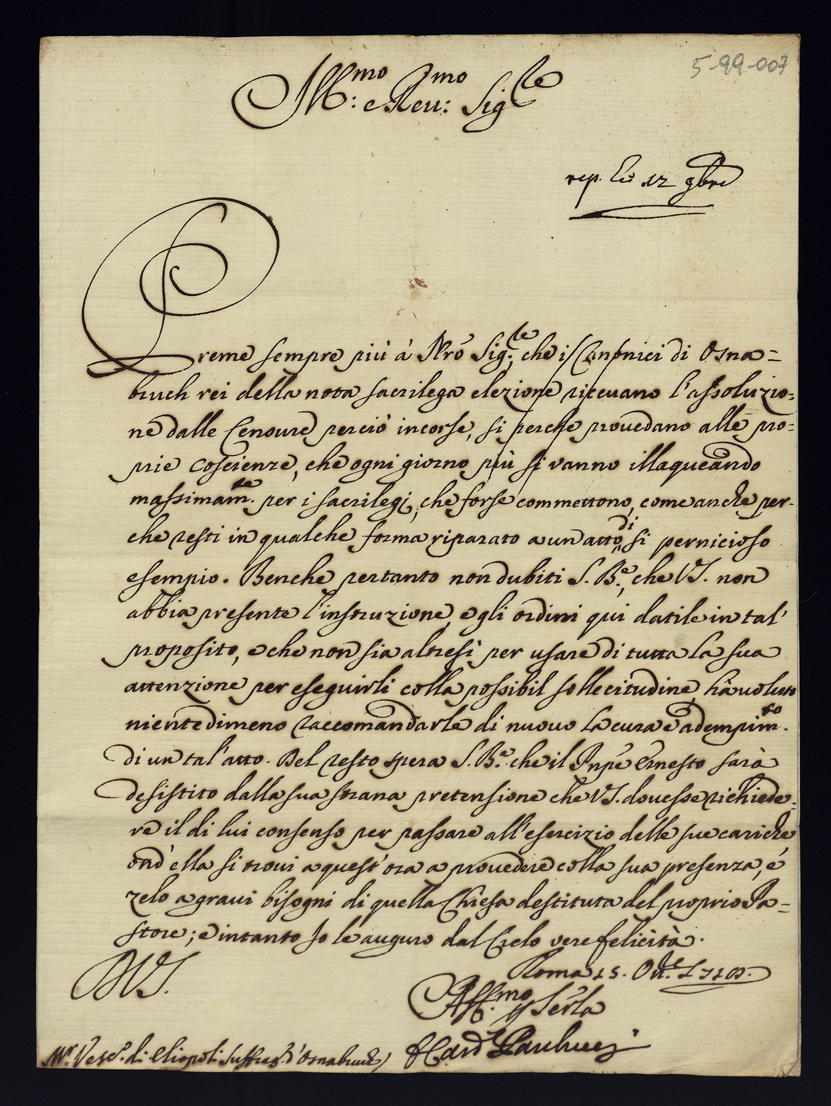 5-99-007
Ill:mo e Reu:mo Sig:re
resp. li 12 9bre
Preme sempre più à Nrõ Sig:re, che i Canonici di Osna=
bruch rei della nota sacrilega elezione riceuano l'assoluzio=
ne dalle Censure perciò incorse, si perche prouedano alle pro=
prie Coscienze, che ogni giorno più si vanno illaqueando
massimam:te per i sacrilegi, che forse commettono, come anche per=
che resti in qualche forma riparato a un atto di si pernicioso
esempio. Benche pertanto non dubiti S. B:e, che VS. non
abbia presente l'instruzione, e gli ordini qui datile in tal'
proposito, e che non sia altresì per usare di tutta la sua
attenzione per eseguirli colla possibil sollecitudine, hà voluto
nientedimeno raccomandarle di nuouo la cura e adempim:to
di un tal'atto. Del resto spera S. B:e che il Prñpe Ernesto sarà
desistito dalla sua strana pretensione che VS. douesse richiede=
re il di lui consenso per passare all'esercizio delle sue cariche
ond'ella si troui a quest'ora a prouedere colla sua presenza, e
zelo a graui bisogni di quella Chiesa destituta del proprio Pa=
store; e intanto Io le auguro dal Cielo vere felicità.
Roma 15. Ott:e
DVS.
Aff:mo p Serla
Il Card. Paulucci
Mr. Vesc:o di Eliopoli Suffrag. d'Osnabruch